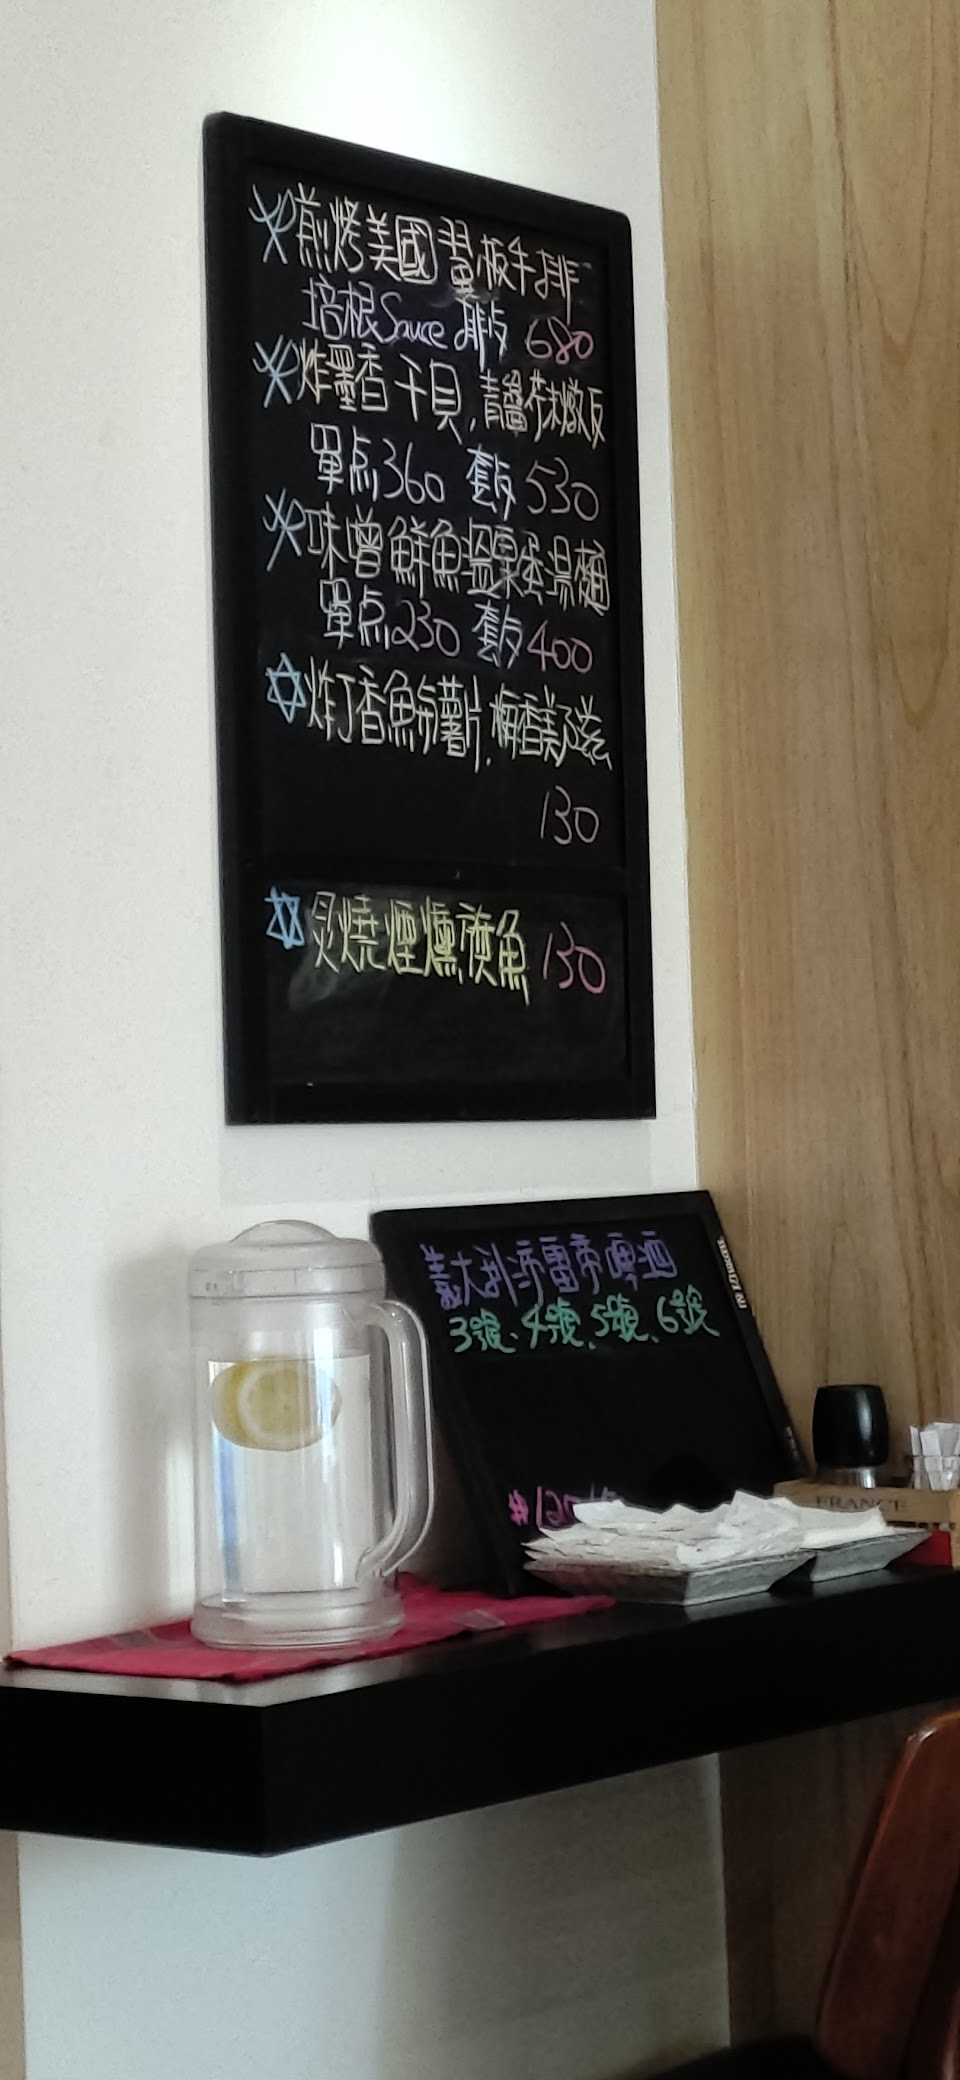 煎烤美國翼板牛排
培根Sauce 排片 680
炸墨香干貝,青醬芥末燉飯
單点360 套餐530
味噌鮮魚溫泉蛋湯麵
單点230 套餐400
炸丁香魚薯片,梅香美乃滋
130
炙燒煙燻魚 130
義大利 啤酒
3號、4號、5號、6號
FRANCE